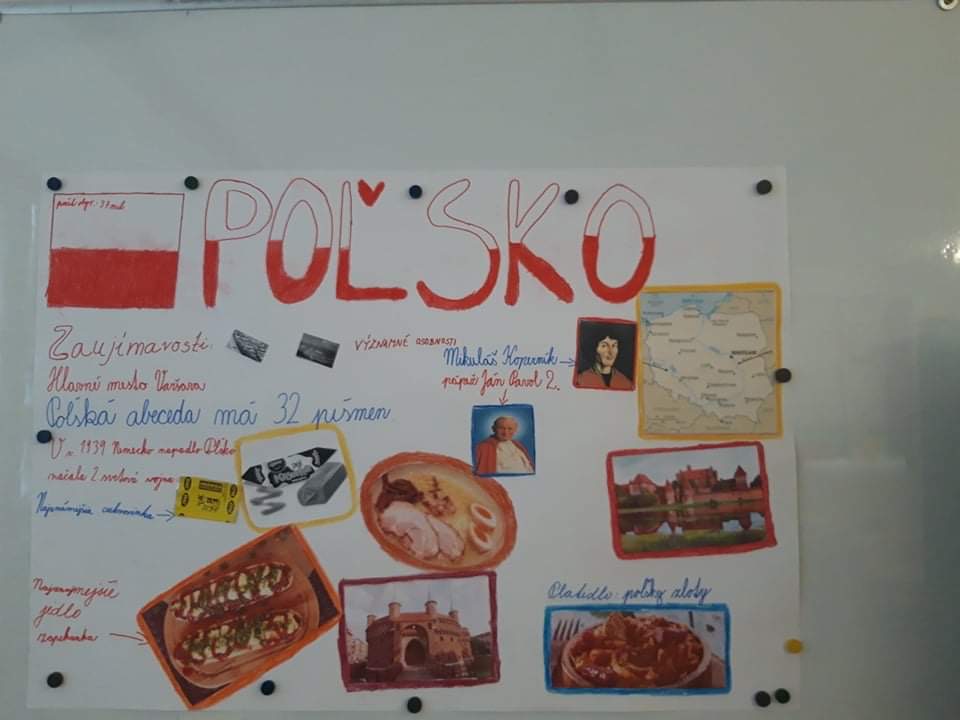 POĽSKO
Zaujímavosti:
VÝZNAMNÉ OSOBNOSTI
Mikuláš Kopernik
pápež Ján Pavol 2.
Hlavné mesto Varšava
Poľská abeceda má 32 písmen
V r. 1939 Nemecko napadlo Pľsko
načala 2 svetová vojna
Najznámejšia cukrovinka
Najznámejšie
jedlo
zapekanka
Platidlo: poľský zloty